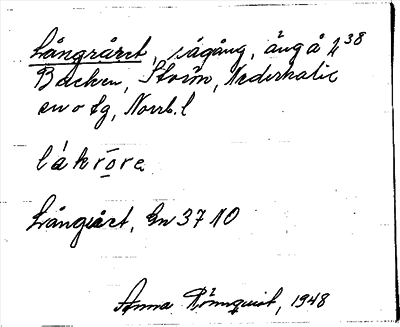 Långrået, sågång, äng å 2³⁸
Backen, Ström, Nederkalix
sn o tg, Norrb. l
lákrōre
Långrået, Gn 37 10
Anna Rönnquist, 1948